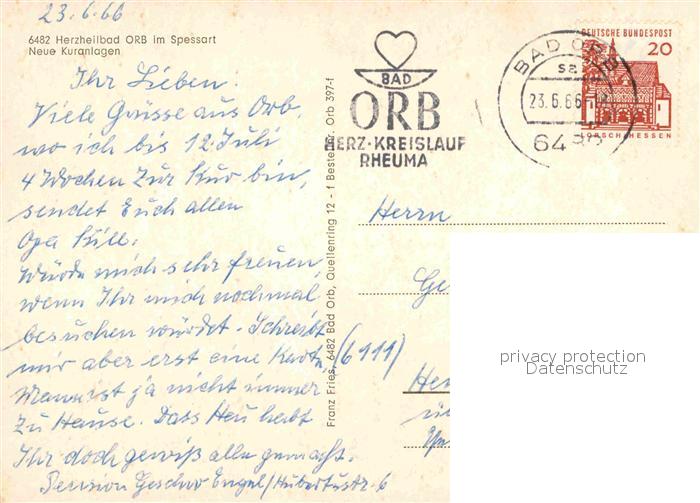 23.6.66
6482 Herzheilbad ORB im Spessart
Neue Kuranlagen
Ihr Lieben.
Viele Grüsse aus Orb,
wo ich bis 12. Juli
4 Wochen zur Kur bin,
sendet Euch allen
Opa
Würde mich sehr freuen,
wenn Ihr mich nochmal
besuchen würdet. Schreibt
mir aber erst eine Karte,
Mann ist ja nicht immer
zu Hause. Dass Heu habt
Ihr doch gewiß alle gemacht.
Pension Geschw Engel/Hubertusstr. 6
Franz Fries, 6482 Bad Orb, Quellenring 12 - f Bestellnr. Orb 397-f
BAD
ORB
HERZ·KREISLAUF
RHEUMA
BAD ORB
23.6.66
DEUTSCHE BUNDESPOST
20
LORSCH/HESSEN
Herrn
(6911)
privacy protection
Datenschutz